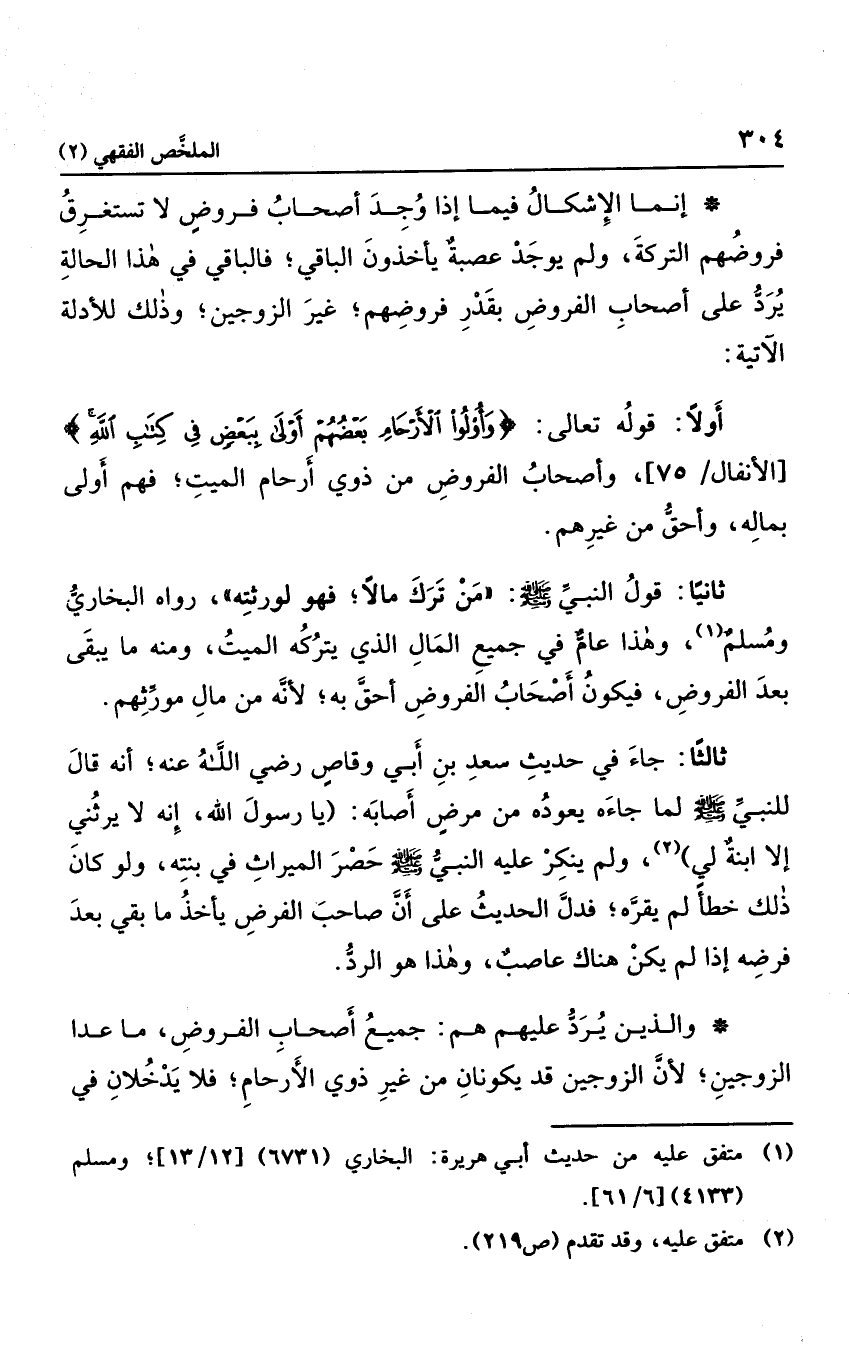 ٣٠٤
الملخَّص الفقهي (٢)
* إنـمـا الإِشكـالُ فيمـا إذا وُجِـدَ أصحـابُ فـروضٍ لا تستغـرِقُ
فروضُهم التركةَ، ولم يوجَدْ عصبةٌ يأخذونَ الباقي؛ فالباقي في هٰذا الحالةِ
يُرَدُّ على أصحابِ الفروضِ بقَدْرِ فروضِهم؛ غيرَ الزوجين؛ وذٰلك للأدلة
الآتية:
أَولاً: قولُه تعالى: ﴿وَأُوْلُواْ ٱلْأَرْحَامِ بَعْضُهُمْ أَوْلَىٰ بِبَعْضٍ فِى كِتَٰبِ ٱللَّهِۚ﴾
[الأنفال/ ٧٥]، وأصحابُ الفروضِ من ذوي أَرحام الميتِ؛ فهم أَولى
بمالِه، وأحقُّ من غيرِهم.
ثانيًا: قولُ النبـيِّ ﷺ: «مَنْ تَرَكَ مالاً؛ فهو لورثتِه»، رواه البخاريُّ
ومُسلمٌ(١)، وهٰذا عامٌّ في جميعِ المَالِ الذي يترُكُه الميتُ، ومنه ما يبقَى
بعدَ الفروضِ، فيكونُ أَصْحَابُ الفروضِ أحقَّ به؛ لأنَّه من مالِ مورِّثِهم.
ثالثًا: جاءَ في حديثِ سعدِ بنِ أَبـي وقاصٍ رضي اللَّـٰهُ عنه؛ أنه قالَ
للنبـيِّ ﷺ لما جاءَه يعودُه من مرضٍ أَصابَه: (يا رسولَ الله، إِنه لا يرثُني
إلا ابنةٌ لي)(٢)، ولم ينكِرْ عليه النبـيُّ ﷺ حَصْرَ الميراثِ في بنتِه، ولو كانَ
ذٰلك خطأً لم يقرَّه؛ فدلَّ الحديثُ على أَنَّ صاحبَ الفرضِ يأخذُ ما بقي بعدَ
فرضِه إذا لم يكنْ هناك عاصبٌ، وهٰذا هو الردُّ.
* والـذيـن يُـرَدُّ عليهـم هـم: جميـعُ أَصحـابِ الفـروضِ، مـا عـدا
الزوجينِ؛ لأنَّ الزوجين قد يكونانِ من غيرِ ذوي الأَرحامِ؛ فلا يَدْخُلانِ في
(١) متفق عليه من حديث أبـي هريرة: البخاري (٦٧٣١) [١٣/١٢]؛ ومسلم
(٤١٣٣) [٦١/٦].
(٢) متفق عليه، وقد تقدم (ص٢١٩).